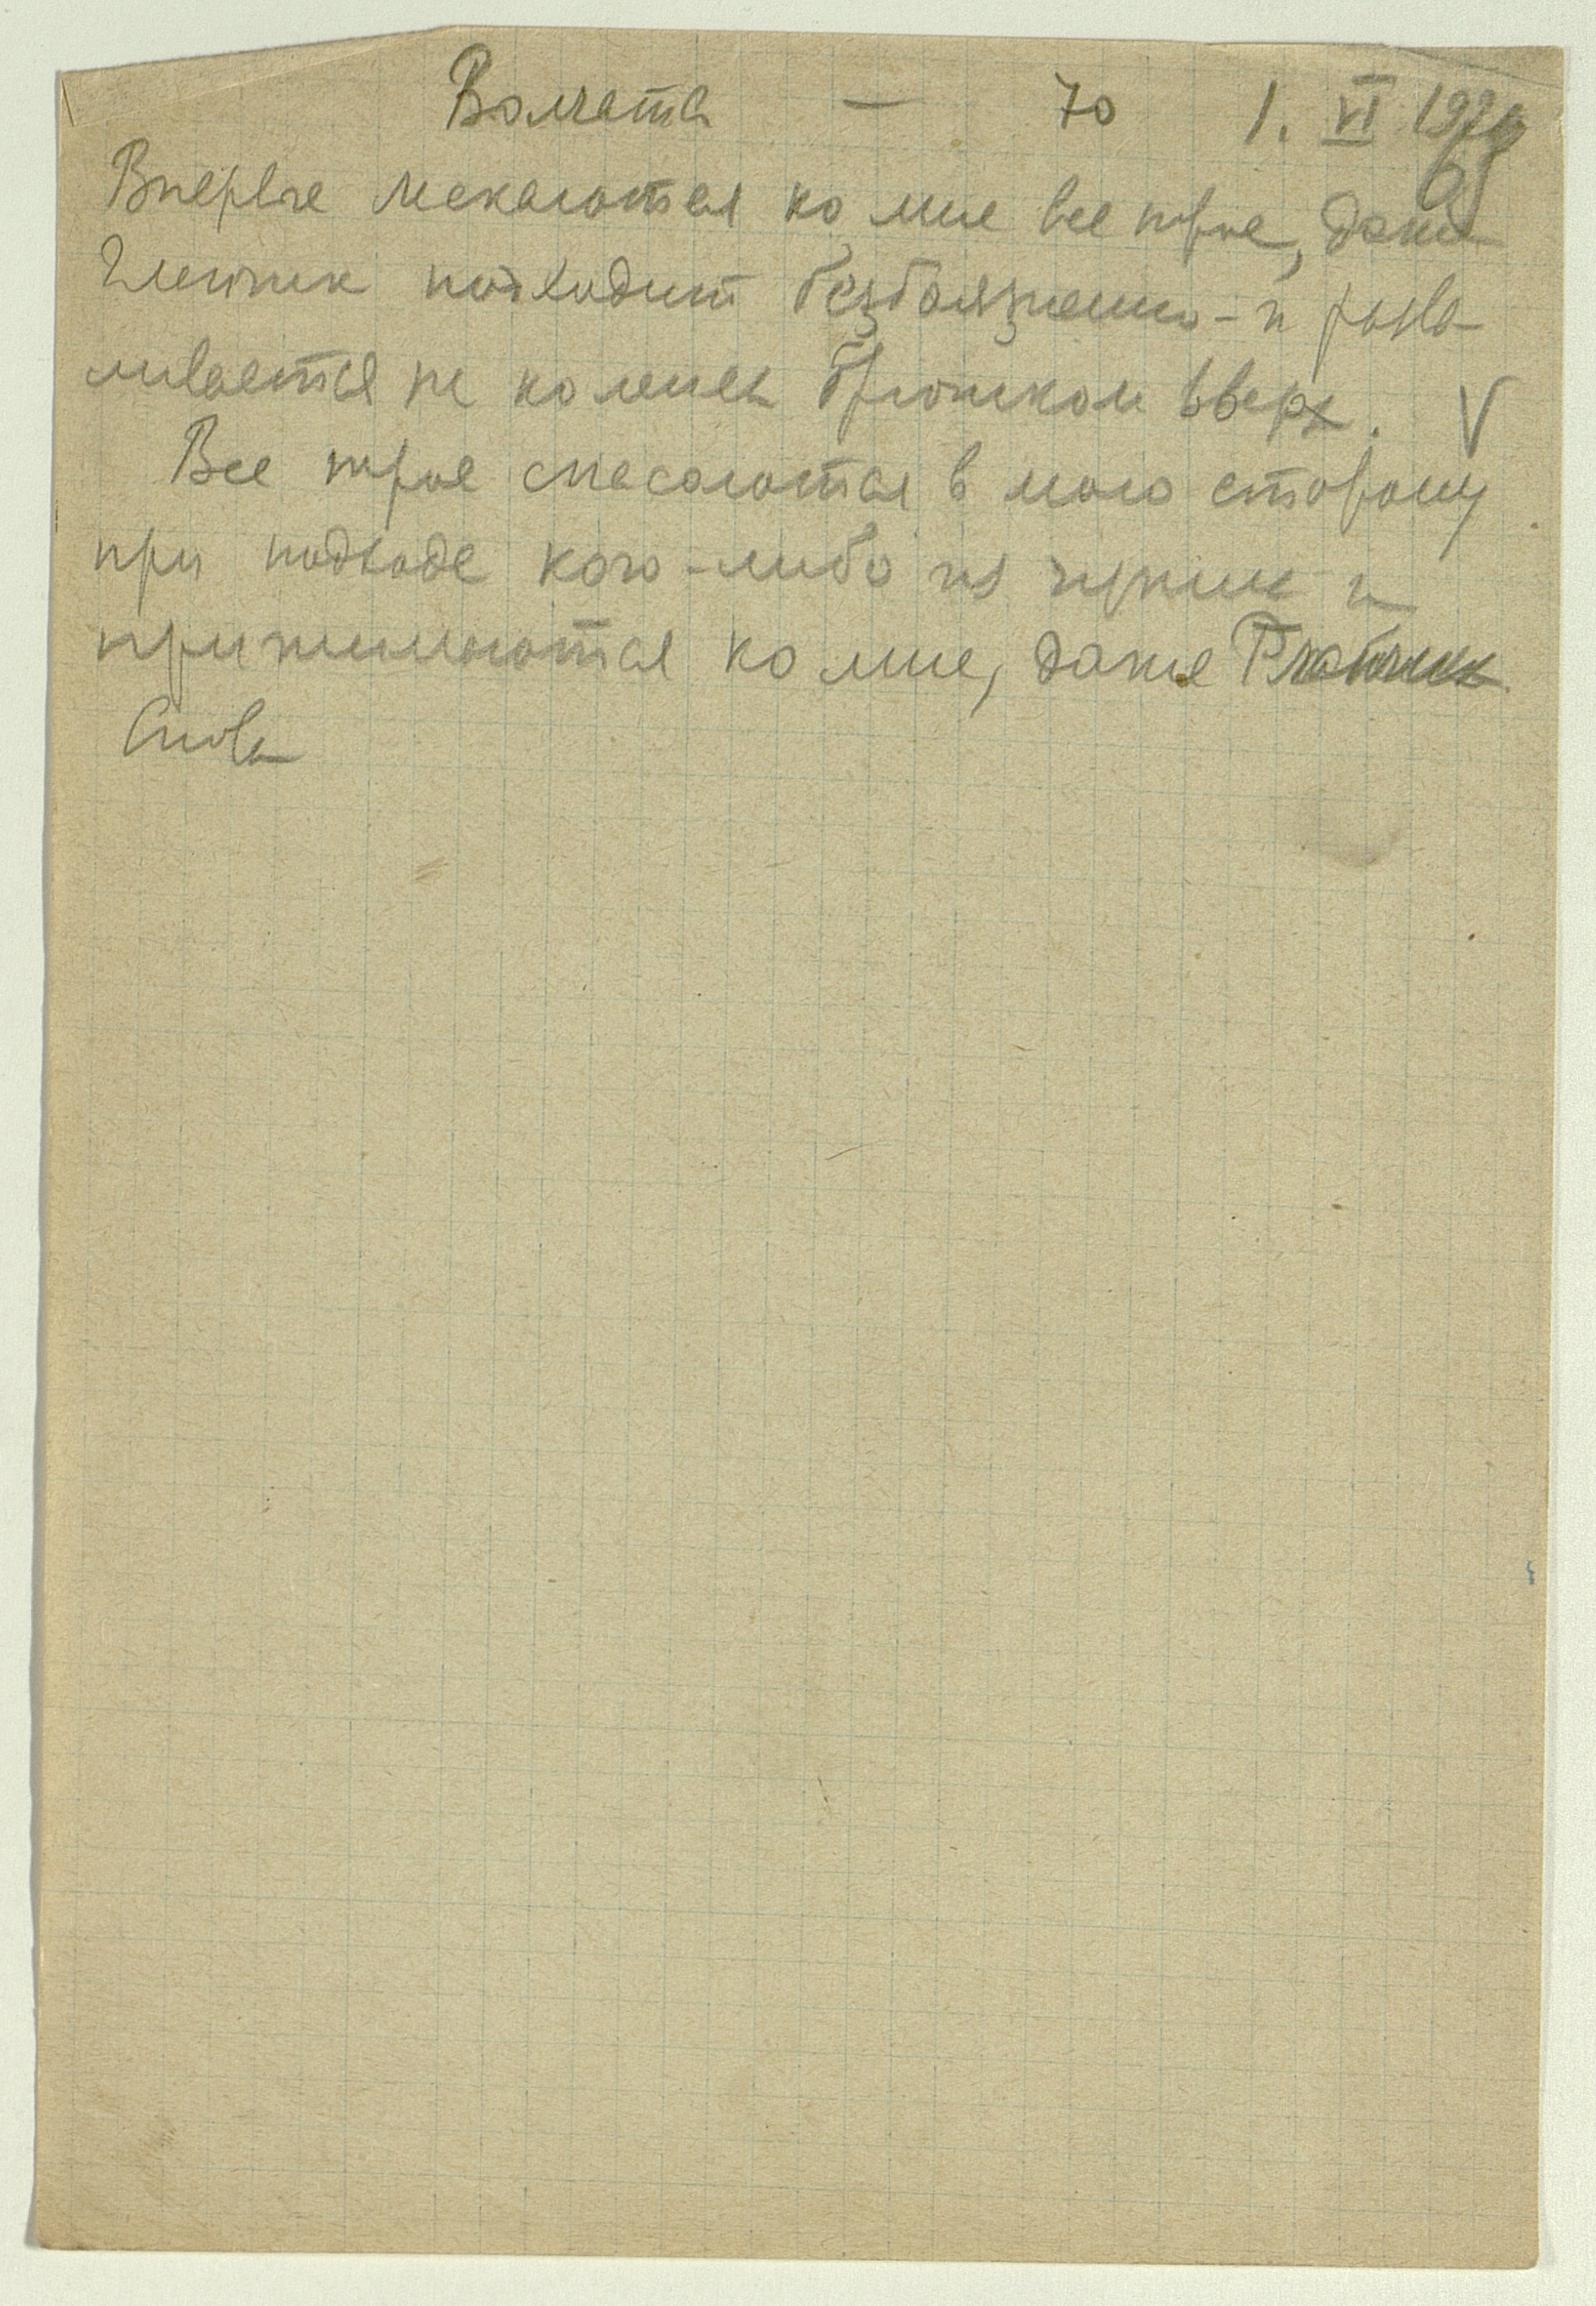 Волчата — 70 1. VI 192
Впервые ласкаются ко мне все трое, даже
подходит безбоязненно - и разва-
ливается на коленях брюшком вверх. V
Все трое спасаются в мою сторону
при подходе кого-либо из чужих и
прижимаются ко мне, даже
Снова